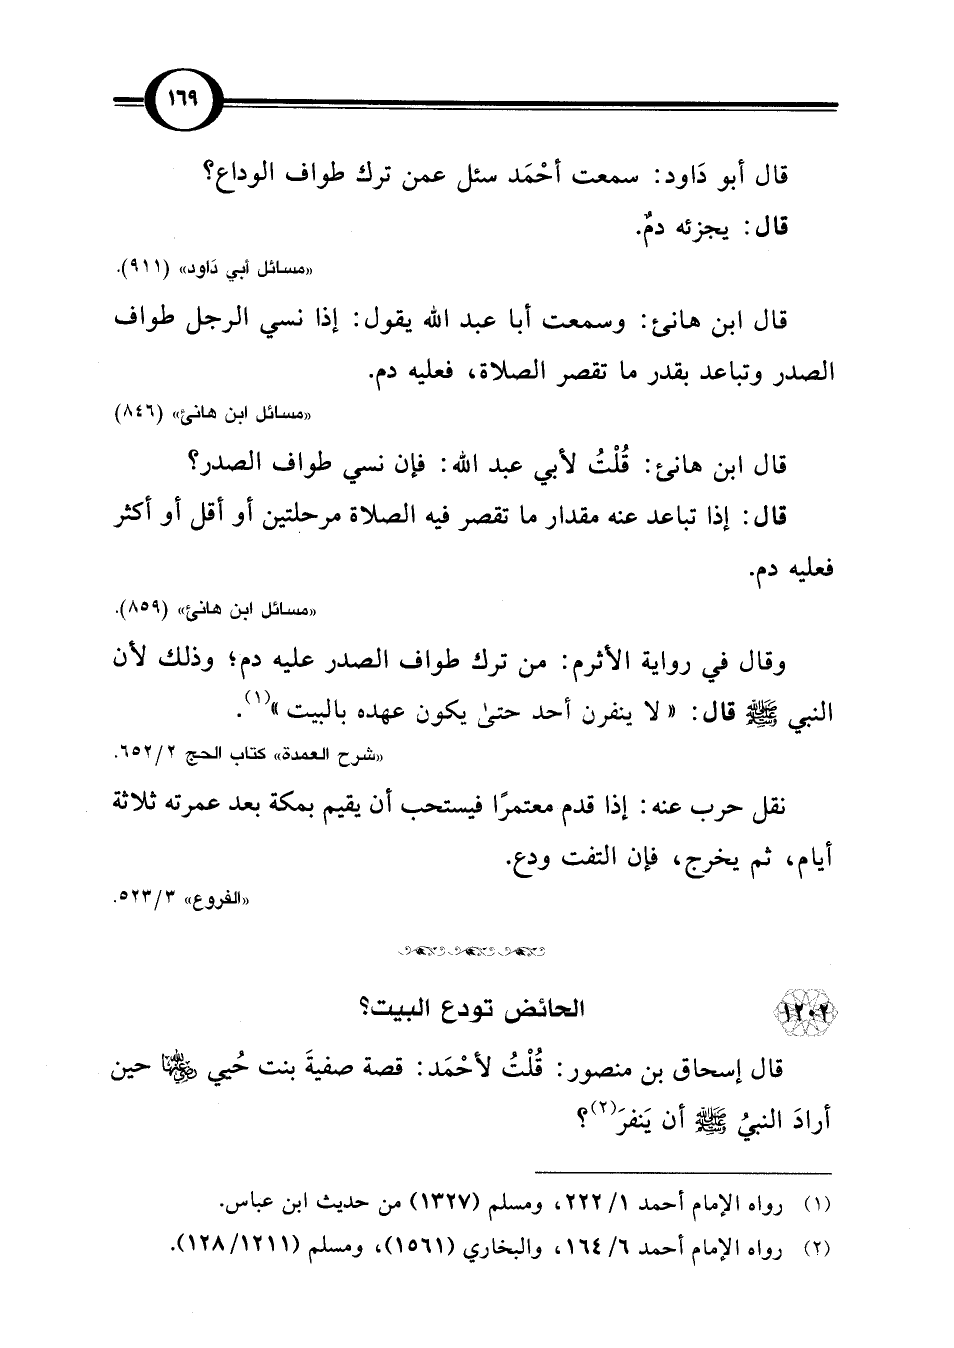 ١٦٩
قال أبو دَاود: سمعت أحْمَد سئل عمن ترك طواف الوداع؟
قال: يجزئه دمٌ.
«مسائل أبي دَاود» (٩١١).
قال ابن هانئ: وسمعت أبا عبد الله يقول: إذا نسي الرجل طواف
الصدر وتباعد بقدر ما تقصر الصلاة، فعليه دم.
«مسائل ابن هانئ» (٨٤٦)
قال ابن هانئ: قُلْتُ لأبي عبد الله: فإن نسي طواف الصدر؟
قال: إذا تباعد عنه مقدار ما تقصر فيه الصلاة مرحلتين أو أقل أو أكثر
فعليه دم.
«مسائل ابن هانئ» (٨٥٩).
وقال في رواية الأثرم: من ترك طواف الصدر عليه دم؛ وذلك لأن
النبي ﷺ قال: «لا ينفرن أحد حتىٰ يكون عهده بالبيت»(١).
«شرح العمدة» كتاب الحج ٢/ ٦٥٢.
نقل حرب عنه: إذا قدم معتمرًا فيستحب أن يقيم بمكة بعد عمرته ثلاثة
أيام، ثم يخرج، فإن التفت ودع.
«الفروع» ٣/ ٥٢٣.
١٢٠٢ الحائض تودع البيت؟
قال إسحاق بن منصور: قُلْتُ لأحْمَد: قصة صفيةَ بنت حُيي رضي الله عنها حين
أرادَ النبيُ ﷺ أن يَنفرَ(٢)؟
(١) رواه الإمام أحمد ١/ ٢٢٢، ومسلم (١٣٢٧) من حديث ابن عباس.
(٢) رواه الإمام أحمد ٦/ ١٦٤، والبخاري (١٥٦١)، ومسلم (١٢١١/ ١٢٨).